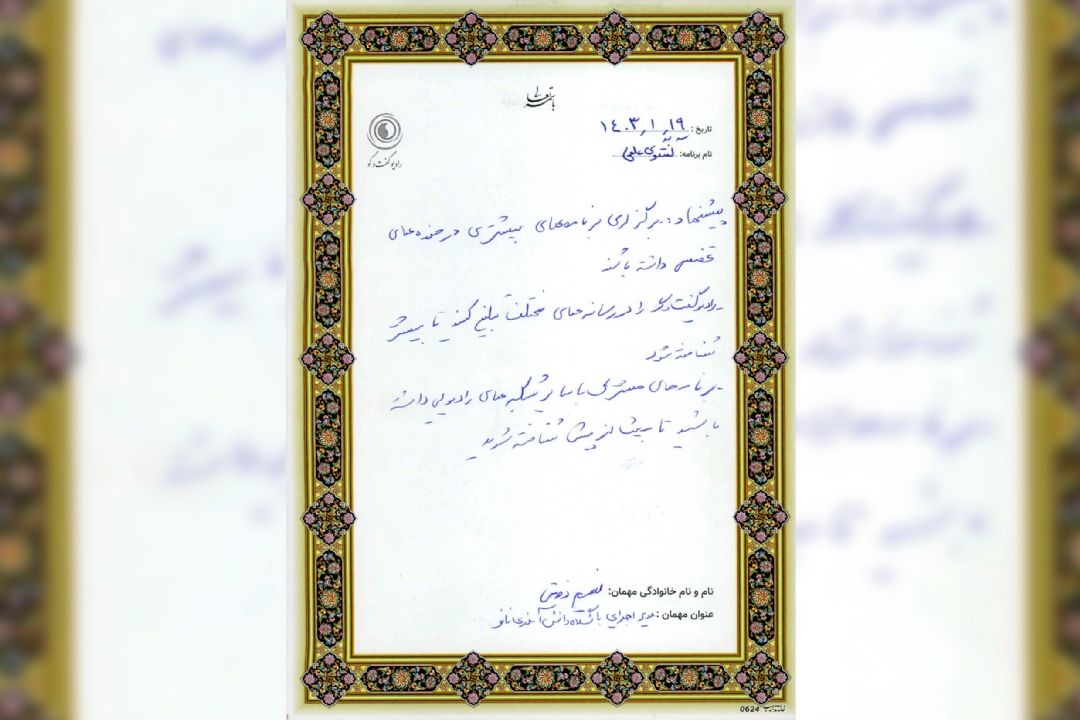 باسمه تعالی
رادیو گفت و گو
تاریخ: ۱۴۰۳/۱/۱۹
نام برنامه: گفتگوی علمی
پیشنهاد: برگزاری برنامه‌های بیشتری در حوزه‌های
تخصصی داشته باشند
- رادیو گفت‌وگو را در رسانه‌های مختلف تبلیغ کنید تا بیشتر
شناخته شود
- برنامه‌های مشترکی با سایر شبکه‌های رادیویی داشته
باشید تا بیش از پیش شناخته شوید
نام و نام خانوادگی مهمان: نسیم
عنوان مهمان: مدیر اجرایی باشگاه دانش‌آموزی نانو
0624